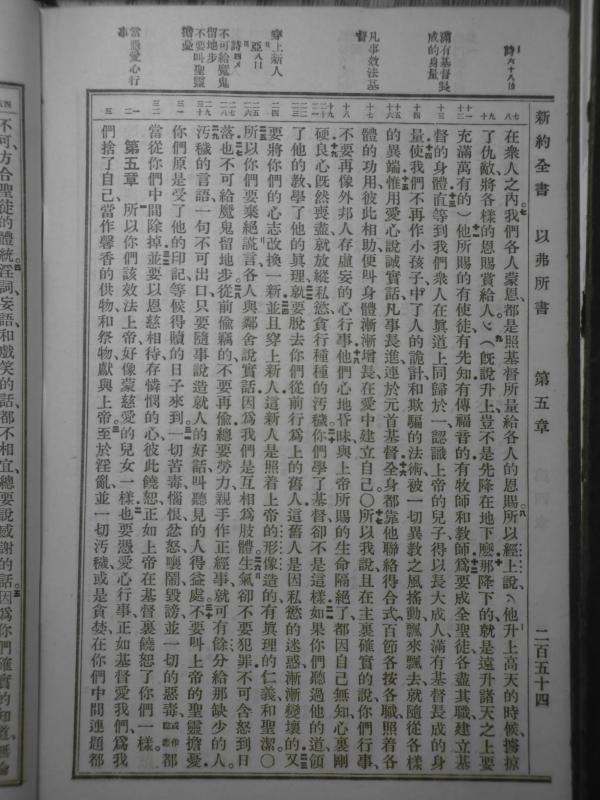 新約全書 以弗所書 第五章 二百五十四
在衆人之內我們各人蒙恩都是照基督所量給各人的恩賜所以經上說他升上高天的時候擄掠
了仇敵將各樣的恩賜賞給人（旣說升上豈不是先降在地下麽那降下的就是遠升諸天之上要
充滿萬有的）他所賜的有使徒有先知有傳福音的有牧師和教師爲要成全聖徒各盡其職建立基
督的身體直等到我們衆人在眞道上同歸於一認識上帝的兒子得以長大成人滿有基督長成的身
量使我們不再作小孩子中了人的詭計和欺騙的法術被一切異教之風搖動飄來飄去就隨從各樣
的異端惟用愛心說誠實話凡事長進連於元首基督全身都靠他聯絡得合式百節各按各職照着各
體的功用彼此相助便叫身體漸漸增長在愛中建立自己〇所以我說且在主裏確實的說你們行事
不要再像外邦人存虛妄的心行事他們心地昏昧與上帝所賜的生命隔絕了都因自己無知心裏剛
硬良心旣然喪盡就放縱私慾貪行種種的汚穢你們學了基督卻不是這樣如果你們聽過他的道領
了他的教學了他的眞理就要脫去你們從前行爲上的舊人這舊人是因私慾的迷惑漸漸變壞的又
要將你們的心志改換一新並且穿上新人這新人是照着上帝的形像造的有眞理的仁義和聖潔〇
所以你們要棄絕謊言各人與鄰舍說實話因爲我們是互相爲肢體生氣卻不要犯罪不可含怒到日
落也不可給魔鬼留地步從前偷竊的不要再偷總要勞力親手作正經事就可有餘分給那缺少的人
汚穢的言語一句不可出口只要隨事說造就人的好話叫聽見的人得益處不要叫上帝的聖靈擔憂
你們原是受了他的印記等候得贖的日子來到一切苦毒惱恨忿怒嚷鬧毀謗並一切的惡毒都
當從你們中間除掉並要以恩慈相待存憐憫的心彼此饒恕正如上帝在基督裏饒恕了你們一樣
第五章 所以你們該效法上帝好像蒙慈愛的兒女一樣也要憑愛心行事正如基督愛我們爲我
們捨了自己當作馨香的供物和祭物獻與上帝至於淫亂並一切汚穢或是貪婪在你們中間連題都
滿有基督長成的身量
凡事效法基督
穿上新人
不可給魔鬼留地步
不要叫聖靈擔憂
當憑愛心行事
不可方合聖徒的體統淫詞妄語和戲笑的話都不相宜總要說感謝的話因爲你們確實的知道